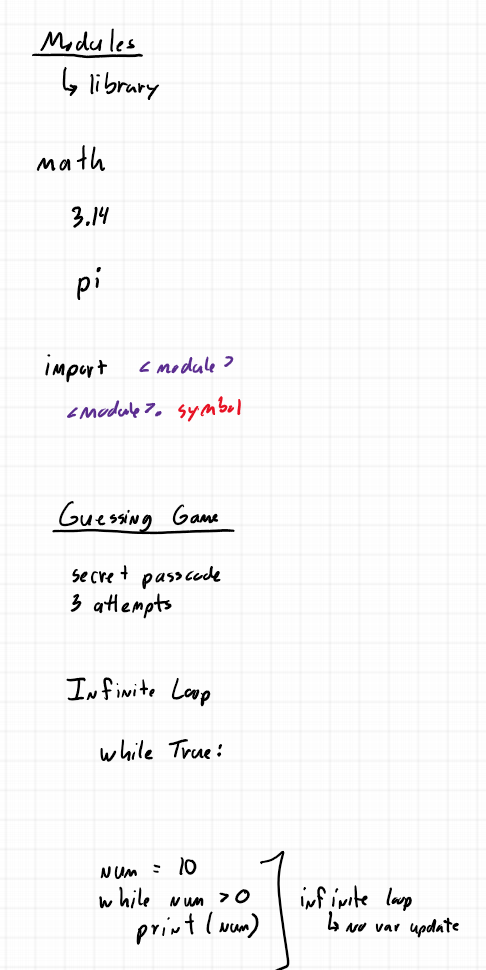 Modules
↳ library
math
3.14
pi
import <module>
<module>. symbol
Guessing Game
secret passcode
3 attempts
Infinite Loop
while True:
num = 10
while num >0
print (num)
infinite loop
↳ no var update